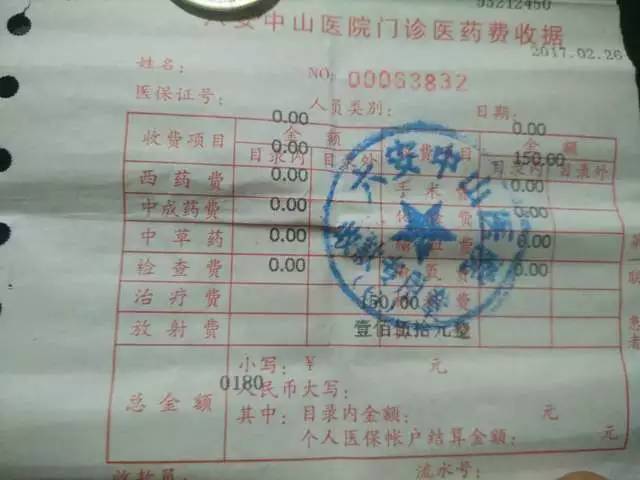 93212450
六安中山医院门诊医药费收据
2017.02.26
姓名: NO: 00063832
医保证号: 人员类别: 日期:
0.00 0.00
收费项目 金额 费 目 金额
0.00 150.00
目录内 目录外 目录内 目录外
西药费 0.00 手术费 0.00
中成药费 0.00 0.00
中草药 0.00 0.00
检查费 0.00 0.00
治疗费 150.00
放射费 壹佰伍拾元整
六安中山医院
小写: ¥ 元
0180
总金额 人民币大写:
其中: 目录内金额: 元
个人医保帐户结算金额: 元
收款员: 流水号:
联
患者